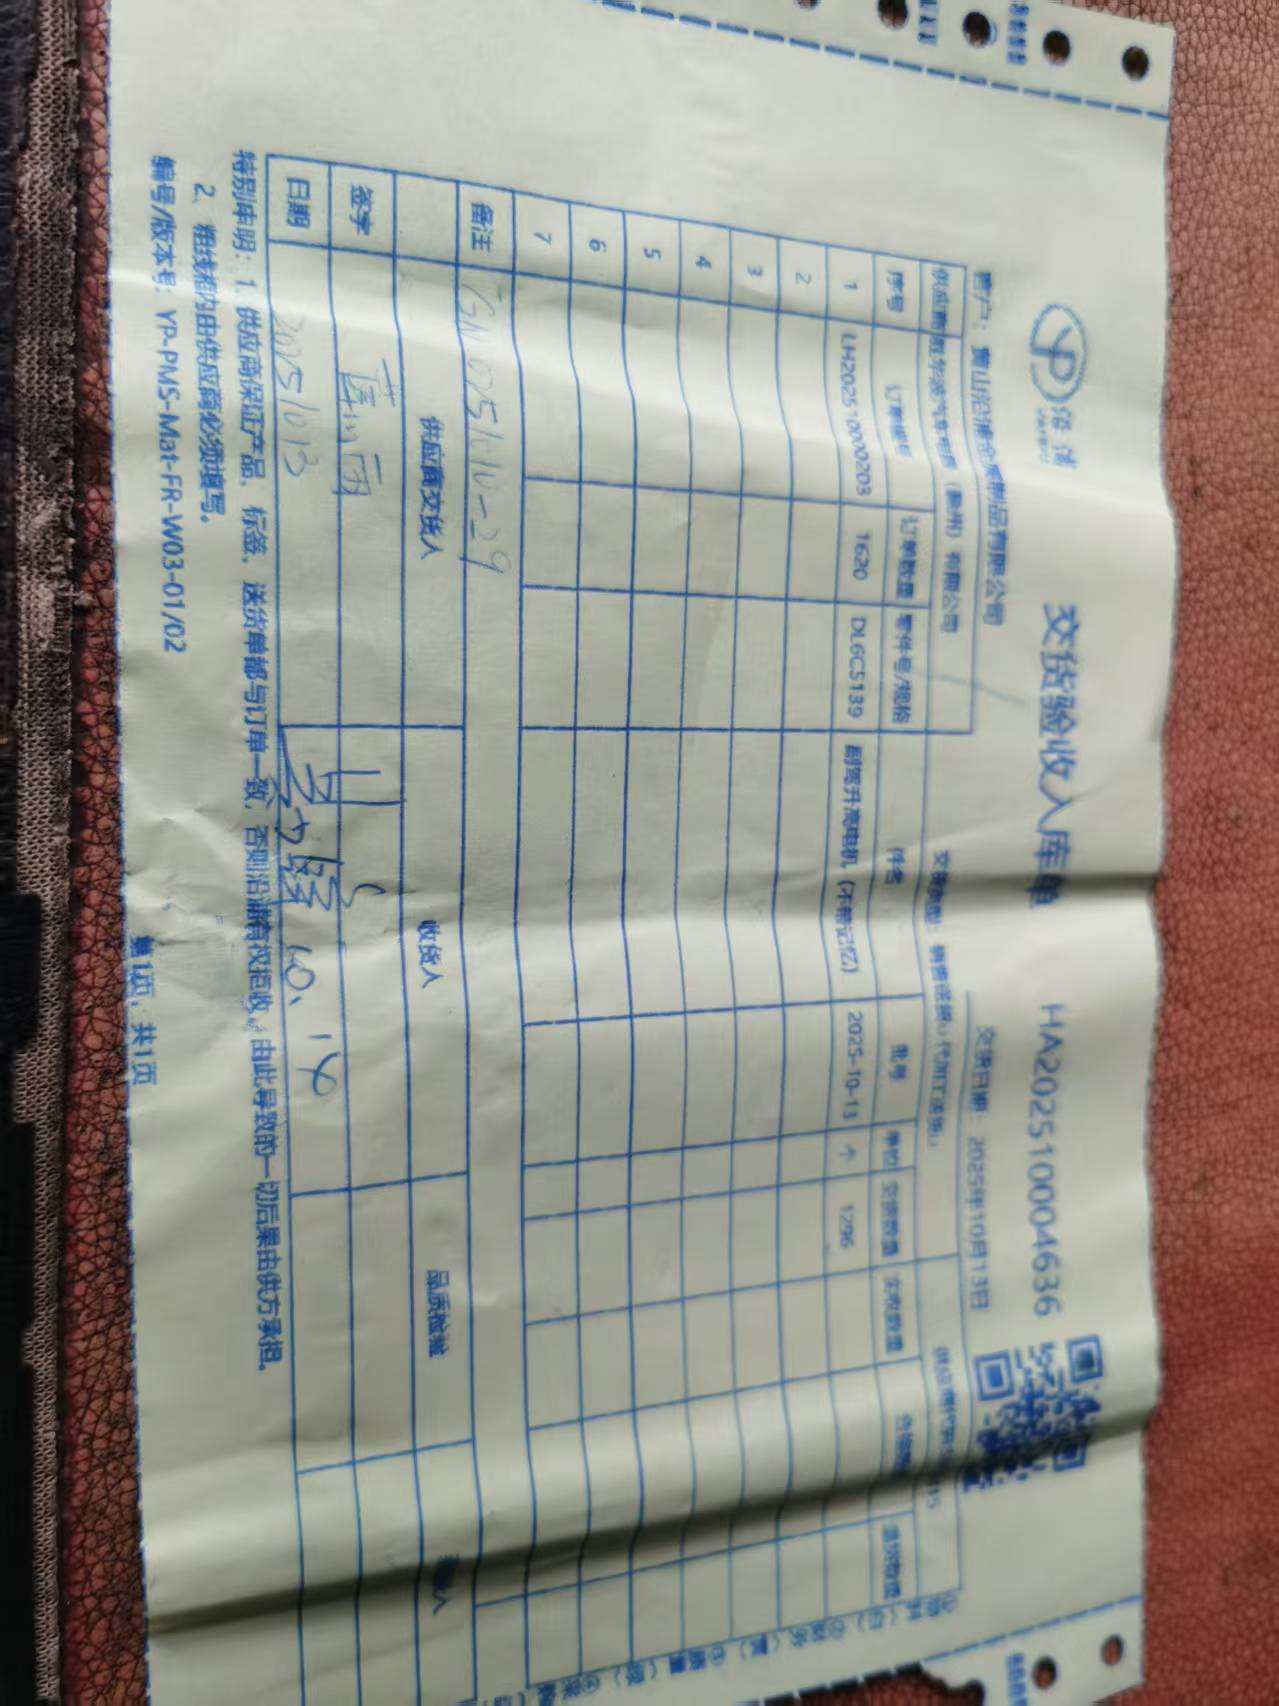 沿浦
YANPU
交货验收入库单
HA202510004636
客户：黄山沿浦金属制品有限公司
交货日期：2025年10月13日
有限公司
序号 订单编号 订单数量 零件号/规格 件名 批号 单位 交货数量 实收数量
1 LH202510000203 1620 DL6C5139 副驾升高电机（不带记忆） 2025-10-13 个 1296
2
3
4
5
6
7
备注
供应商交货人 收货人 品质检验
签字
日期 20251013 10.14
特别申明：1、供应商保证产品、标签、送货单都与订单一致，否则沿浦有权拒收。由此导致的一切后果由供方承担。
2、粗线框内由供应商必须填写。
编号/版本号：YP-PMS-Mat-FR-W03-01/02
第1页，共1页